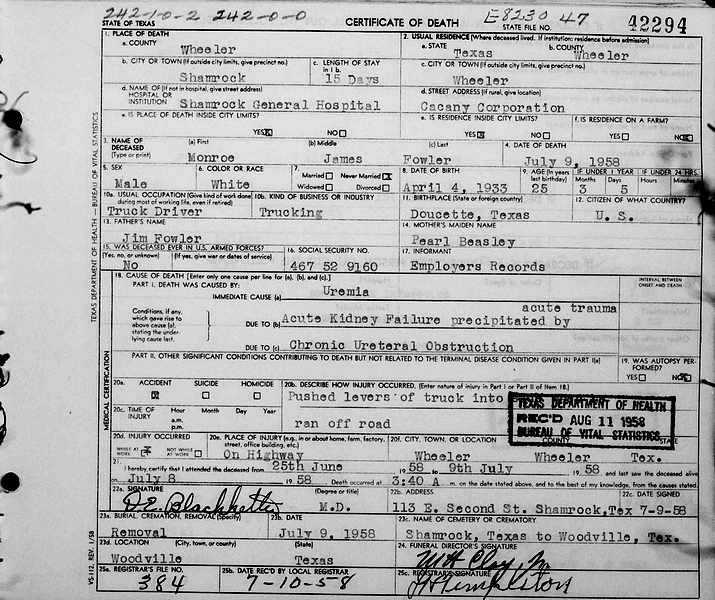 242-10-2 242-0-0
E8230 47
STATE OF TEXAS
CERTIFICATE OF DEATH
STATE FILE NO.
42294
1. PLACE OF DEATH
a. COUNTY
Wheeler
2. USUAL RESIDENCE (Where deceased lived. If institution: residence before admission)
a. STATE
Texas
b. COUNTY
Wheeler
b. CITY OR TOWN (If outside city limits, give precinct no.)
Shamrock
c. LENGTH OF STAY
in 1 b.
15 Days
c. CITY OR TOWN (If outside city limits, give precinct no.)
Wheeler
d. NAME OF (If not in hospital, give street address)
HOSPITAL OR
INSTITUTION
Shamrock General Hospital
d. STREET ADDRESS (If rural, give location)
Cacany Corporation
e. IS PLACE OF DEATH INSIDE CITY LIMITS?
YES NO
e. IS RESIDENCE INSIDE CITY LIMITS?
YES NO
f. IS RESIDENCE ON A FARM?
YES NO
3. NAME OF
DECEASED
(Type or print)
(a) First
Monroe
(b) Middle
James
(c) Last
Fowler
4. DATE OF DEATH
July 9, 1958
5. SEX
Male
6. COLOR OR RACE
White
7.
Married Never Married
Widowed Divorced
8. DATE OF BIRTH
April 4, 1933
9. AGE (In years
last birthday)
25
IF UNDER 1 YEAR
Months Days
3 5
IF UNDER 24 HRS.
Hours Minutes
10a. USUAL OCCUPATION (Give kind of work done
during most of working life, even if retired)
Truck Driver
10b. KIND OF BUSINESS OR INDUSTRY
Trucking
11. BIRTHPLACE (State or foreign country)
Doucette, Texas
12. CITIZEN OF WHAT COUNTRY?
U. S.
13. FATHER'S NAME
Jim Fowler
14. MOTHER'S MAIDEN NAME
Pearl Beasley
15. WAS DECEASED EVER IN U.S. ARMED FORCES?
(Yes, no, or unknown) (If yes, give war or dates of service)
No
16. SOCIAL SECURITY NO.
467 52 9160
17. INFORMANT
Employers Records
18. CAUSE OF DEATH [Enter only one cause per line for (a), (b), and (c).]
INTERVAL BETWEEN
ONSET AND DEATH
PART I. DEATH WAS CAUSED BY:
IMMEDIATE CAUSE (a)
Uremia
Conditions, if any,
which gave rise to
above cause (a),
stating the underlying
cause last.
acute trauma
DUE TO (b) Acute Kidney Failure precipitated by
DUE TO (c) Chronic Ureteral Obstruction
PART II. OTHER SIGNIFICANT CONDITIONS CONTRIBUTING TO DEATH BUT NOT RELATED TO THE TERMINAL DISEASE CONDITION GIVEN IN PART I(a)
19. WAS AUTOPSY PERFORMED?
YES NO
20a. ACCIDENT SUICIDE HOMICIDE
20b. DESCRIBE HOW INJURY OCCURRED. (Enter nature of injury in Part I or Part II of Item 18.)
Pushed levers of truck into
ran off road
20c. TIME OF
INJURY
Hour Month Day Year
a.m.
p.m.
TEXAS DEPARTMENT OF HEALTH
REC'D AUG 11 1958
BUREAU OF VITAL STATISTICS
20d. INJURY OCCURRED
WHILE AT WORK NOT WHILE AT WORK
20e. PLACE OF INJURY (e.g., in or about home, farm, factory,
street, office building, etc.)
On Highway
20f. CITY, TOWN, OR LOCATION COUNTY STATE
Wheeler Wheeler Tex.
21.
I hereby certify that I attended the deceased from 25th June 1958 to 9th July 1958 and last saw the deceased alive
on July 8 1958. Death occurred at 3:40 A m. on the date stated above, and to the best of my knowledge, from the causes stated.
22a. SIGNATURE
D.E. Blackketter
(Degree or title)
M.D.
22b. ADDRESS
113 E. Second St. Shamrock, Tex
22c. DATE SIGNED
7-9-58
23a. BURIAL, CREMATION, REMOVAL (Specify)
Removal
23b. DATE
July 9, 1958
23c. NAME OF CEMETERY OR CREMATORY
Shamrock, Texas to Woodville, Tex.
23d. LOCATION (City, town, or county) (State)
Woodville Texas
24. FUNERAL DIRECTOR'S SIGNATURE
25a. REGISTRAR'S FILE NO.
384
25b. DATE REC'D BY LOCAL REGISTRAR
7-10-58
25c. REGISTRAR'S SIGNATURE
TEXAS DEPARTMENT OF HEALTH — BUREAU OF VITAL STATISTICS
MEDICAL CERTIFICATION
VS-112, REV. 1/58